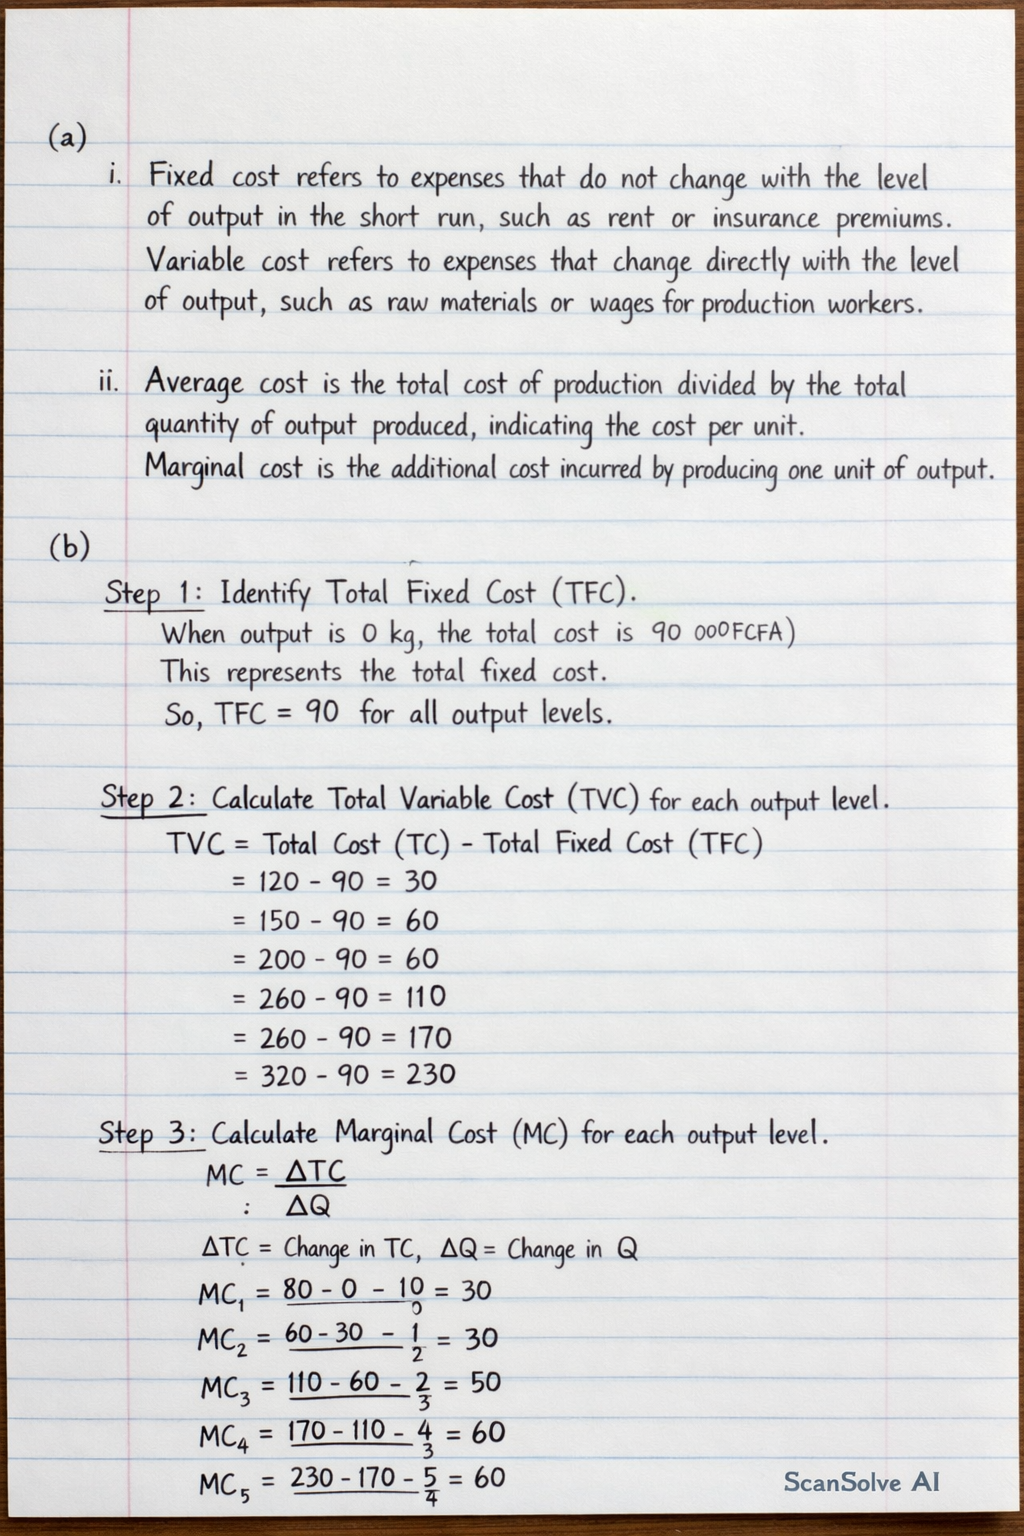 (a)
i. Fixed cost refers to expenses that do not change with the level
of output in the short run, such as rent or insurance premiums.
Variable cost refers to expenses that change directly with the level
of output, such as raw materials or wages for production workers.
ii. Average cost is the total cost of production divided by the total
quantity of output produced, indicating the cost per unit.
Marginal cost is the additional cost incurred by producing one unit of output.
(b)
Step 1: Identify Total Fixed Cost (TFC).
When output is 0 kg, the total cost is 90 000FCFA)
This represents the total fixed cost.
So, TFC = 90 for all output levels.
Step 2: Calculate Total Variable Cost (TVC) for each output level.
TVC = Total Cost (TC) - Total Fixed Cost (TFC)
= 120 - 90 = 30
= 150 - 90 = 60
= 200 - 90 = 60
= 260 - 90 = 110
= 260 - 90 = 170
= 320 - 90 = 230
Step 3: Calculate Marginal Cost (MC) for each output level.
MC = ΔTC
: ΔQ
ΔTC = Change in TC, ΔQ = Change in Q
MC₁ = 80 - 0 - 10/0 = 30
MC₂ = 60 - 30 - 1/2 = 30
MC₃ = 110 - 60 - 2/3 = 50
MC₄ = 170 - 110 - 4/3 = 60
MC₅ = 230 - 170 - 5/4 = 60
ScanSolve AI